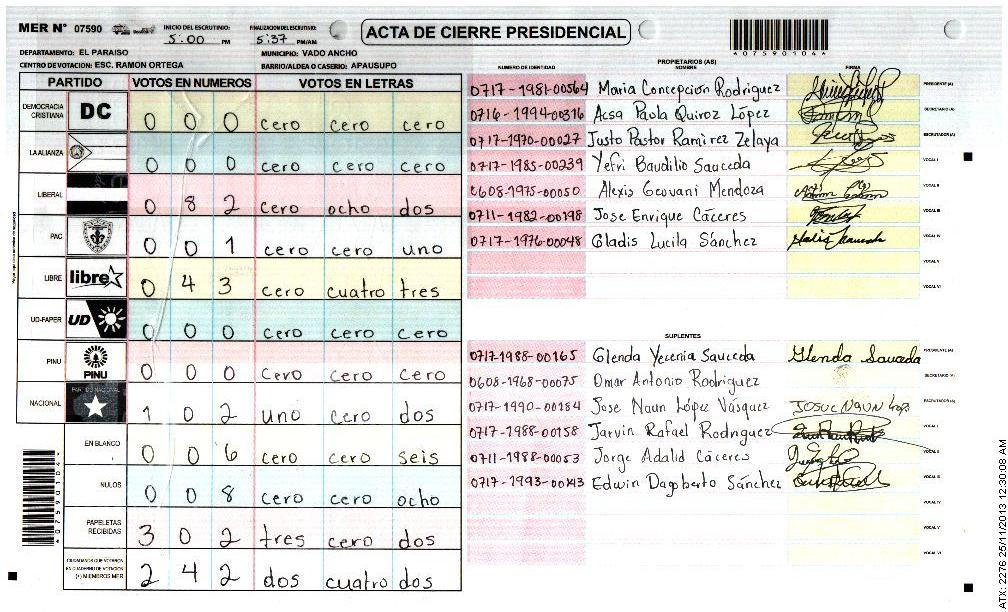 MER N° 07590
INICIO DEL ESCRUTINIO:
5:00 PM
FINALIZACION DEL ESCRUTINIO:
5:37 PM/AM
ACTA DE CIERRE PRESIDENCIAL
4075901044
DEPARTAMENTO: EL PARAISO
MUNICIPIO: VADO ANCHO
CENTRO DE VOTACION: ESC. RAMON ORTEGA
BARRIO/ALDEA O CASERIO: APAUSUPO
PARTIDO VOTOS EN NUMEROS VOTOS EN LETRAS
DEMOCRACIA CRISTIANA DC 0 0 0 cero cero cero
LA ALIANZA 0 0 0 cero cero cero
LIBERAL 0 8 2 cero ocho dos
PAC 0 0 1 cero cero uno
LIBRE libre 0 4 3 cero cuatro tres
UD-FAPER UD 0 0 0 cero cero cero
PINU PINU 0 0 0 cero cero cero
NACIONAL 1 0 2 uno cero dos
EN BLANCO 0 0 6 cero cero seis
NULOS 0 0 8 cero cero ocho
PAPELETAS RECIBIDAS 3 0 2 tres cero dos
CIUDADANOS QUE VOTARON EN CUADERNO DE VOTACION (+) MIEMBROS MER 2 4 2 dos cuatro dos
PROPIETARIOS (AS)
NUMERO DE IDENTIDAD NOMBRE FIRMA
0717-1981-00564 Maria Concepcion Rodriguez PRESIDENTE (A)
0716-1994-00316 Acsa Paola Quiroz López SECRETARIO (A)
0717-1970-00027 Justo Pastor Ramirez Zelaya ESCRUTADOR (A)
0717-1985-00239 Yefri Baudilio Sauceda VOCAL I
0608-1975-00050 Alexis Geovani Mendoza VOCAL II
0711-1982-00198 Jose Enrique Cáceres VOCAL III
0717-1976-00048 Gladis Lucila Sánchez VOCAL IV
VOCAL V
VOCAL VI
SUPLENTES
0717-1988-00165 Glenda Yecenia Sauceda Glenda Sauceda PRESIDENTE (A)
0608-1968-00075 Omar Antonio Rodriguez SECRETARIO (A)
0717-1990-00184 Jose Naun López Vásquez ESCRUTADOR (A)
0717-1988-00158 Jarvin Rafael Rodriguez VOCAL I
0711-1988-00053 Jorge Adalid Cáceres VOCAL II
0717-1993-00143 Edwin Dagoberto Sánchez VOCAL III
VOCAL IV
VOCAL V
VOCAL VI
4075901044
ATX: 2276 25/11/2013 12:30:08 AM